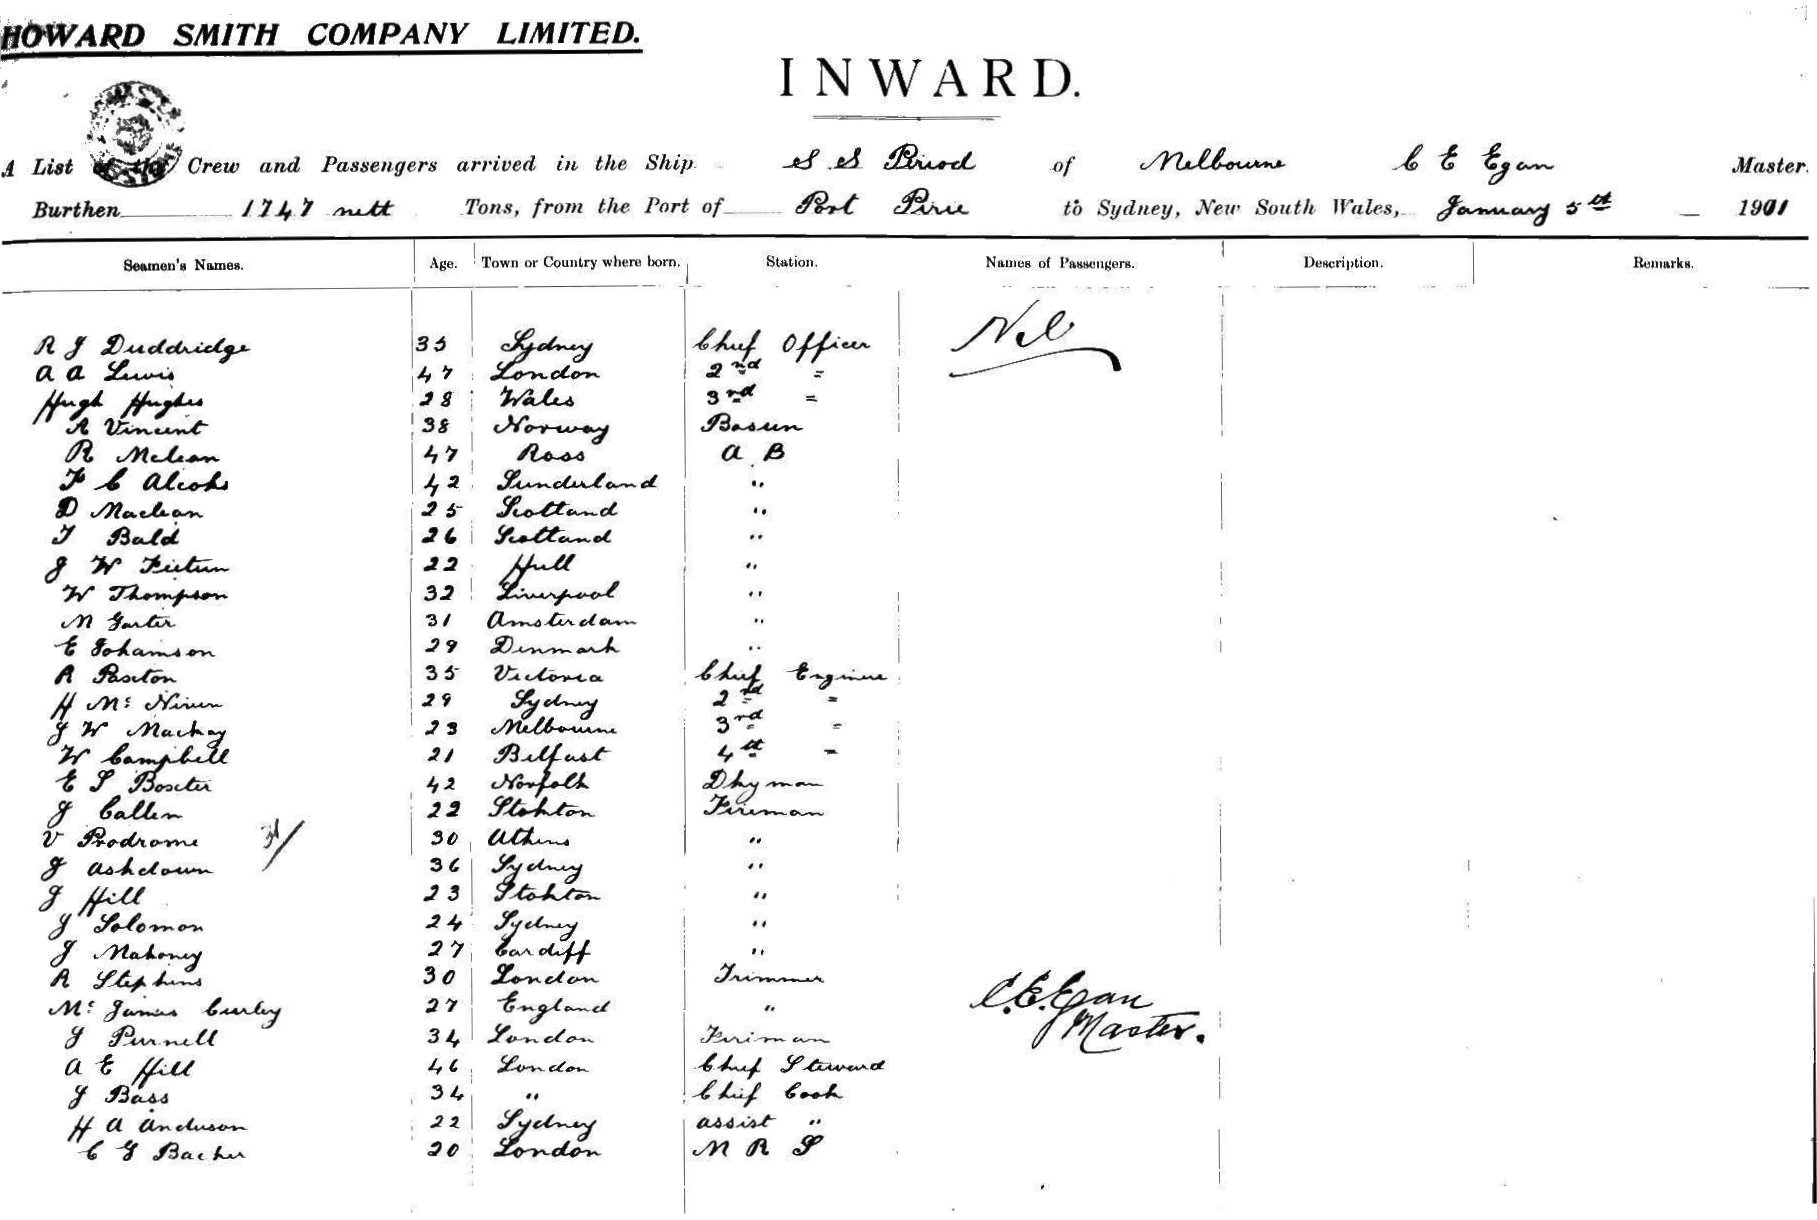 HOWARD SMITH COMPANY LIMITED.
INWARD.
A List of the Crew and Passengers arrived in the Ship S S Period of Melbourne C E Egan Master.
Burthen 1747 nett Tons, from the Port of Port Pirie to Sydney, New South Wales, January 5th 1901
Seamen's Names. Age. Town or Country where born. Station. Names of Passengers. Description. Remarks.
R J Duddridge 35 Sydney Chief Officer Nil
A A Lewis 47 London 2nd "
Hugh Hughes 28 Wales 3rd "
A Vincent 38 Norway Bosun
R McLean 47 Ross A B
F C 42 Sunderland "
D Maclean 25 Scotland "
T Bald 26 Scotland "
J W 22 Hull "
W Thompson 32 Liverpool "
M 31 Amsterdam "
E Johamson 29 Denmark "
A Paxton 35 Victoria Chief Engineer
H Mc Niven 29 Sydney 2nd "
J W Mackay 23 Melbourne 3rd "
W Campbell 21 Belfast 4th "
E S 42 Norfolk Dkyman
J Callen 22 Stockton Fireman
V Prodrome 31/ 30 Athens "
J Ashdown 36 Sydney "
J Hill 23 Stockton "
J Solomon 24 Sydney "
J Mahoney 27 Cardiff "
R Stephens 30 London Trimmer
Mc James Curley 27 England " C. E. Egan
J Purnell 34 London Fireman Master.
A E Hill 46 London Chief Steward
J Bass 34 " Chief Cook
H A Anderson 22 Sydney assist "
C G Bacher 20 London M R S